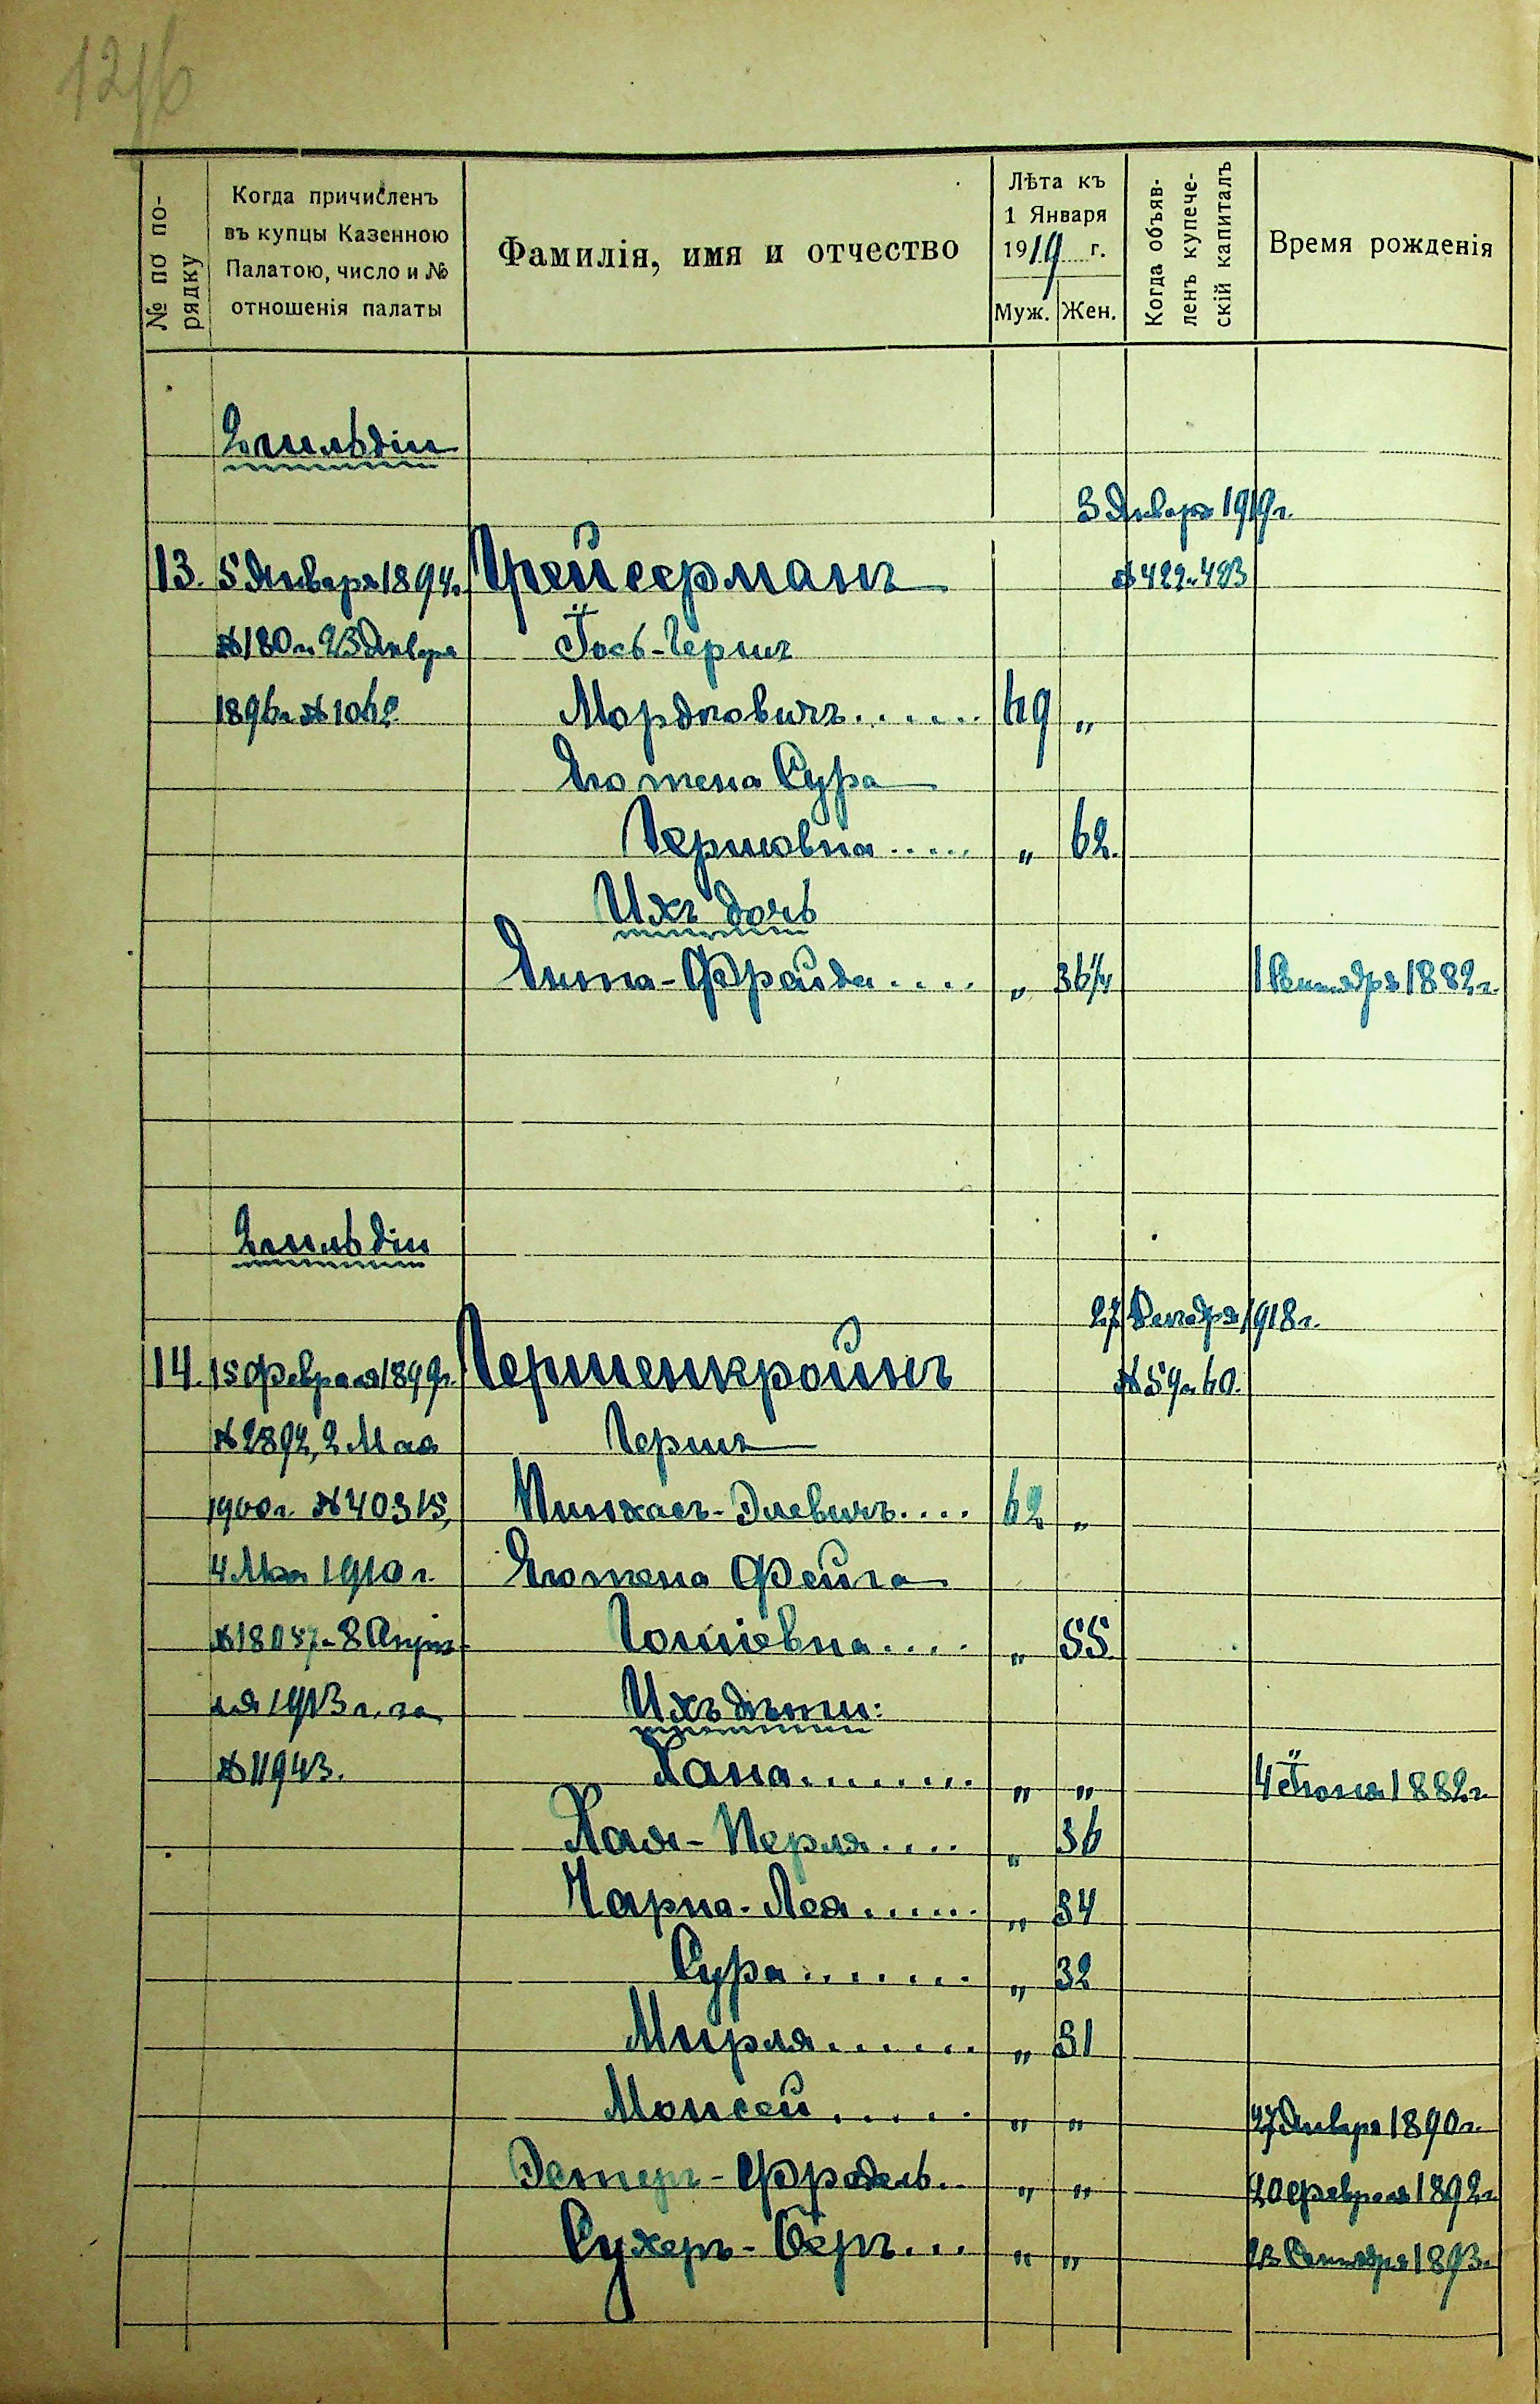 № по по-
рядку
Когда причисленъ
въ купцы Казенною
Палатою, число и №
отношенія палаты
Фамилія, имя и отчество
Лѣта къ
1 Января
1919 г.
Муж. Жен.
Когда объяв-
ленъ купече-
скій капиталъ
Время рожденія
2 гильдіи
3 Января 1919 г.
13. 5 Января 1894 г. Грейсерманъ № 422 и 423
№ 180 и 23 Января Іось-Гершъ
1896 г. № 1062 Мордковичъ...... 69 „
Его жена Сура
Гершовна..... „ 62.
Ихъ дочь
Ента-Фрейда.... „ 36 1/4 1 Сентября 1882 г.
2 гильдіи
27 Декабря 1918 г.
14. 15 Февраля 1899 г. Гершенкройнъ № 59 и 60.
№ 2892, 2 Мая Гершъ
1900 г. № 40315, Пинхасъ-Элевичъ.... 62 „
4 Мая 1910 г. Его жена Фейга
№ 18057 и 8 Апрѣ- .... „ 55
ля 1913 г. за Ихъ дѣти:
№ 11943. Хана........ „ „ 4 Іюня 1882 г.
Хая-Перля.... „ 36
Чарна-Лея...... „ 34
Сура....... „ 32
Мирля...... „ 31
Моисей..... „ „ 27 Января 1890 г.
Эстеръ-Фредель.. „ „ 20 Февраля 1892 г.
Сухеръ-Беръ... „ „ 23 Сентября 1893 г.